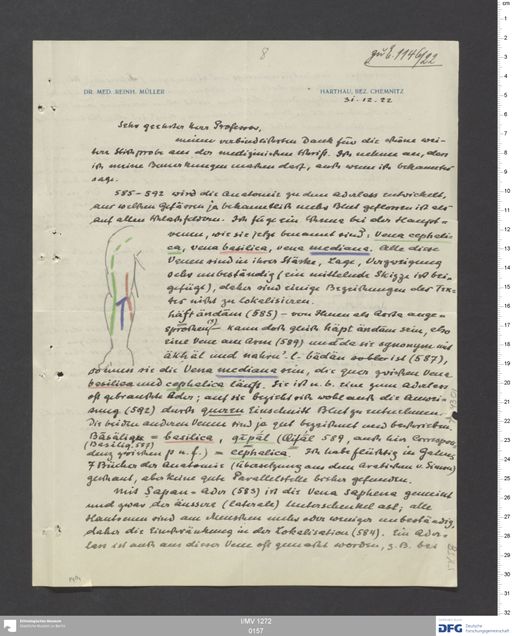 8
zu E. 1146/22
DR. MED. REINH. MÜLLER
HARTHAU, BEZ. CHEMNITZ
31.12.22
Sehr geehrter Herr Professor,
meinen verbindlichsten Dank für die schöne wei-
tere Stichprobe aus der medizinischen Schrift. Ich nehme an, dass
ich meine Bemerkungen machen darf, auch wenn ich bekanntes
sage.
585-592 wird die Anatomie zu dem Aderlass entwickelt,
aus welchen Gefässen ja bekanntlich mehr Blut geflossen ist als
auf allen Schlachtfeldern. Ich füge ein Schema bei der Haupt-
venen, wie sie jetzt benannt sind: vena cephali-
ca, vena basilica, vena mediana. Alle diese
Venen sind in ihrer Stärke, Lage, Verzweigung
sehr unbeständig (eine mittelnde Skizze ist bei-
gefügt), daher sind einige Bezeichnungen der Tex-
te nicht zu lokalisieren.
häft ändām (585) - von Ihnen als Aorta ange-
sprochen (?) - kann doch gleich häpt ändam sein, also
eine Vene am Arm (589) und da sie synonym mit
äkḥäl und nahru'l-bädän selber ist (587),
so muss sie die Vena mediana sein, die quer zwischen Vena
basilica und cephalica läuft. Sie ist u. b. eine zum Aderlass
oft gebrauchte Ader; auf sie bezieht sich wohl auch die Anwei-
sung (592) durch queren Einschnitt Blut zu entnehmen.
Die beiden anderen Venen sind ja gut bezeichnet und beschrieben.
Bāsāliqe = basilica, qīpāl (Qīfāl 589, auch hier Correspon-
(Basiliq 587)
denz zwischen p u. f.) = cephalica. Ich habe flüchtig in Galens
7 Bücher der Anatomie (Übersetzung aus dem Arabischen v. Simon)
geschaut, aber keine gute Parallelstelle bisher gefunden.
Mit Sapan-Ader (583) ist die Vena Saphena gemeint
und zwar der äussere (laterale) Unterschenkelast; alle
Hautvenen sind am Menschen mehr oder weniger unbeständig,
daher die Einschränkung in der Lokalisation (584). Ein Ader-
lass ist auch aus dieser Vene oft gemacht worden, z. B. bei
Ethnologisches Museum
Staatliche Museen zu Berlin
I/MV 1272
0157
DFG Deutsche
Forschungsgemeinschaft